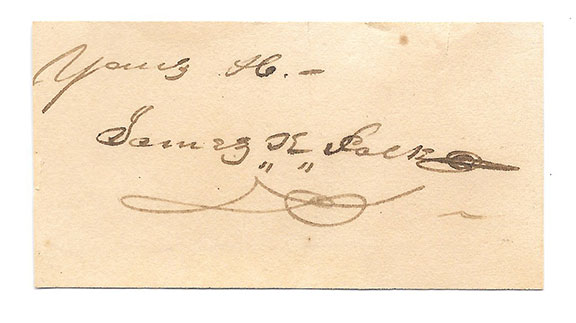 Yours &c. –
James K Polk